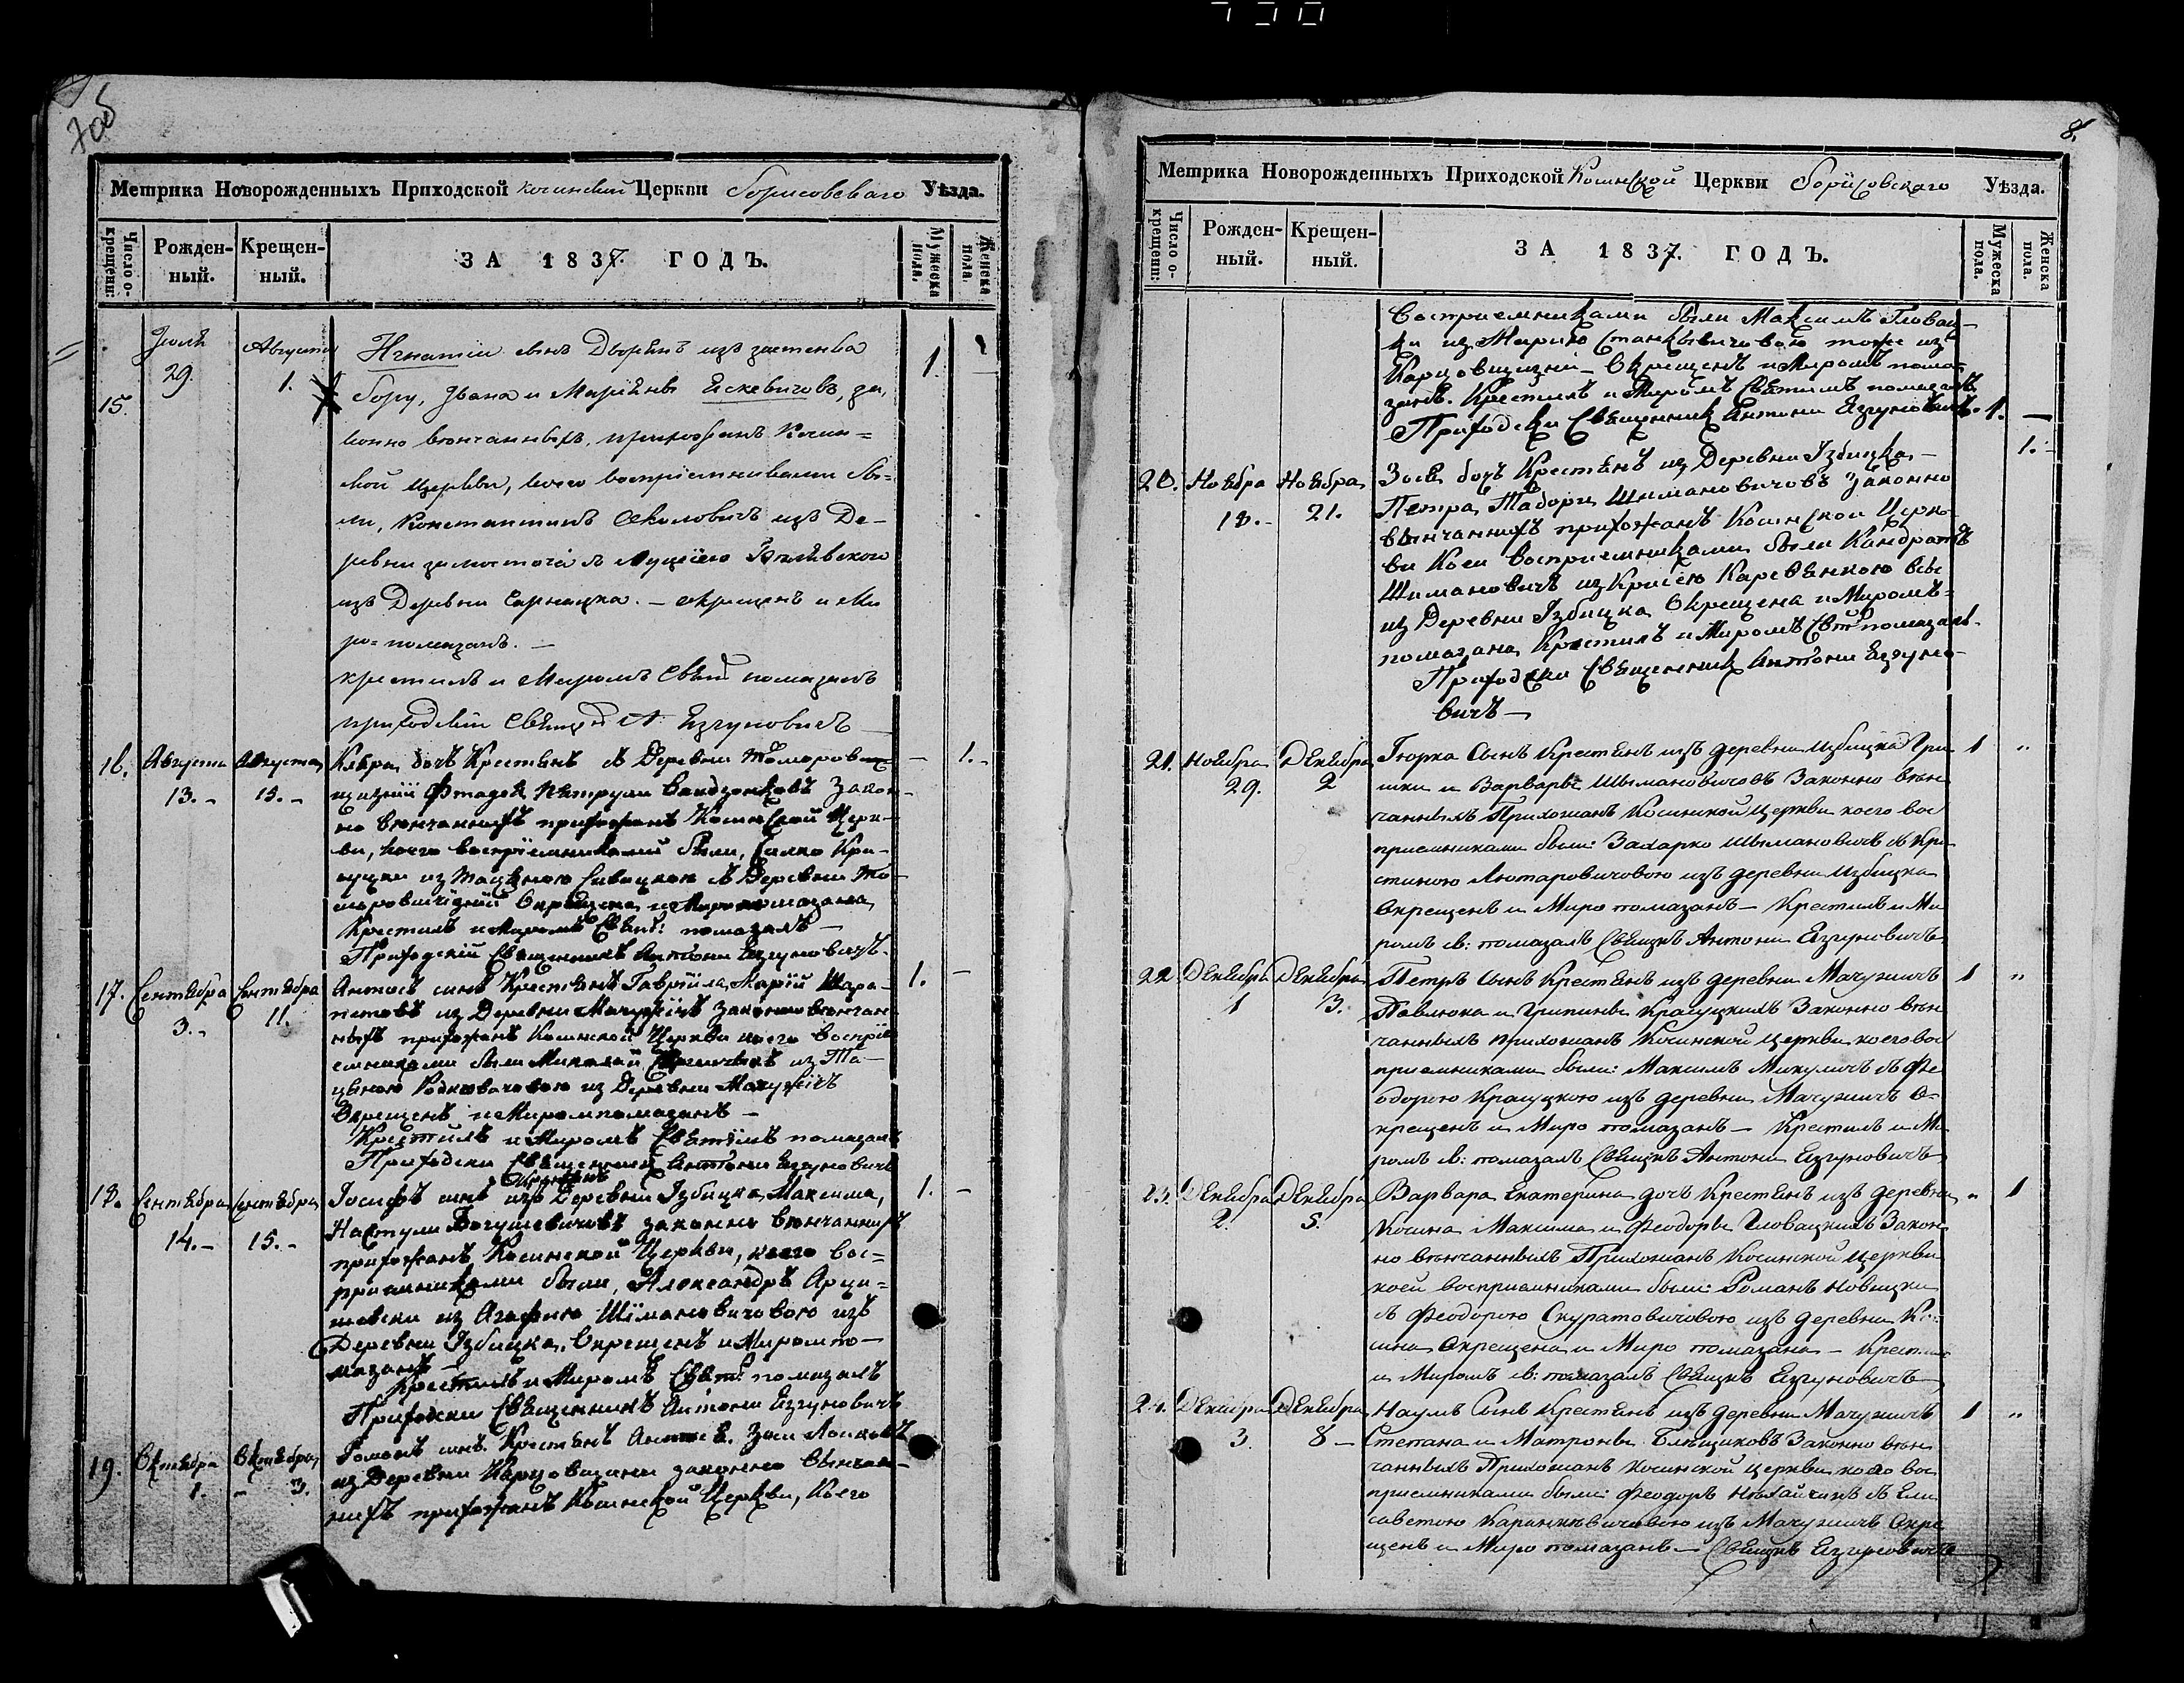 730
7об
Метрика Новорожденныхъ Приходской Косинской Церкви Борисовскаго Уѣзда.
Число о-крещенн:
Рожден-ный.
Крещен-ный.
ЗА 1837. ГОДЪ.
Мужеска пола.
Женска пола.
15.
Іюля 29.
Августа 1.
Игнатій сынъ Дворянъ изъ застенка
Бору, Ивана и Марьяны Ескевичовъ, за-
конно вѣнчанныхъ, прихожанъ Косин=
ской Церкви, коего воспріемниками бы=
ли, Константинъ изъ Де-
ревни съ Луціею
изъ Деревни – окрещенъ и Ми
ро=помазанъ. –
крестилъ и Миромъ Свят помазалъ
приходскій Свящ А. Езгуновичъ
1
16.
Августа 13.-
Августа 15.-
дочъ Крестянъ Деревни
Закон-
но вѣнчаннихъ прихожанъ Косинской Церк-
ви, коего воспріемниками были,
Деревни
Окрещена и Миро помазана
Крестилъ и Миромъ Свят: помазалъ –
Приходскій Священникъ Антони Езгуновичъ.
– 1.-
17.
Сентября 3.-
Сентября 11.
Антось синъ Крестянъ Гавріила, Марій
из Деревни Мачужичъ законно вѣнчан
ныхъ прихожанъ Косинской Церкви коего воспріе
емниками были Миколай из Та-
цяною из Деревни Мачужичъ
Окрещенъ и Миромпомазанъ –
Крестилъ и Миромъ Святымъ помазалъ
Приходски Священник Антони Езгуновичъ
1. –
18.
Сентября 14.-
Сентября 15.-
Крестянъ
Іосифъ синъ изъ Деревни Избицка, Максима,
Настули Богушевичовъ законно вѣнчаннихъ
прихожанъ Косинской Церкви, коего вос=
приемниками были, Александръ Арци=
шевски из Агафiею Шимановичовою изъ
Деревни Избицка, Окрещенъ и Миромпо-
мазанъ –
Крестилъ и Миромъ Свят: помазалъ
Приходски Священникъ Антони Езгуновичъ
1. –
19.
Октября 1.
Октября 3.
Романъ синъ Крестянъ
из Деревни Карцовщизни законно вѣнчан-
нихъ прихожанъ Косинской Церкви, коего
8.
Метрика Новорожденныхъ Приходской Косинской Церкви Борисовскаго Уѣзда.
Число о-крещенн:
Рожден-ный.
Крещен-ный.
ЗА 1837. ГОДЪ.
Мужеска пола.
Женска пола.
Восприемниками были Максимъ Гловац-
ки из Мариею Станкевичовою тоже из
Карцовщизни – Окрещенъ и Миромъ пома-
занъ. Крестилъ и Миромъ Святимъ помазалъ
Приходски Священник Антони Езгуновичъ.
1. –
20.
Ноября 18.-
Ноября 21.
Зося дочъ Крестянъ из Деревни Избицка –
Петра, Тадори Шимановичовъ законно
вѣнчаннихъ прихожанъ Косинской Церк-
ви Коеи восприемниками были Кандратъ
Шимановичъ из Крисею всѣ
из Деревни Избицка Окрещена и Миромъ=
помазана, Крестилъ и Миромъ Свят помазалъ.
Приходски Священник Антони Езгуно-
вичъ –
1.-
21.
Ноября 29.
Декабря 2
Гюрка Сынъ Крестянъ изъ деревни Избицка Гри
шки и Варвары Шымановичовъ Законно вѣн
чанныхъ Прихожанъ Косинской Церкви коего вос
приемниками были: Захарко Шымановичъ съ Кри
стиною Лютаровичовою изъ деревни Избицка
Окрещенъ и Миро помазанъ – Крестилъ и Ми
ромъ св: помазалъ Свящнъ Антони Езгуновичъ
1 "
22
Декабря 1
Декабря 3.
Петръ Сынъ Крестянъ изъ деревни Мачужичъ
Павлюка и Грипины Красуцкихъ Законно вѣн
чанныхъ прихожанъ Косинской Церкви коего вос
приемниками были: Максимъ Микуличъ съ Фе
одорою Красуцкою изъ деревни Мачужичъ О-
крещенъ и Миро помазанъ – Крестилъ и Ми
ромъ св: помазалъ Свящнъ Антони Езгуновичъ
1 "
23.
Декабря 2.
Декабря 5.
Варвара Екатерина дочъ Крестянъ изъ деревни
Косина Максима и Феодоры Гловацкихъ Закон
но вѣнчанныхъ Прихожанъ Косинской Церкви
коей восприемниками были: Романъ Новицки
съ Феодорою Скуратовичовою изъ деревни Ко
сина Окрещена и Миро помазана – Крестилъ
и Миромъ св: помазалъ Свящнъ Езгуновичъ
" 1
24.
Декабря 3.
Декабря 8 –
Наумъ Сынъ Крестянъ изъ деревни Мачужичъ
Степана и Матроны Законно вѣн
чанныхъ Прихожанъ Косинской Церкви коего вос
приемниками были: Феодоръ съ Ели
саветою изъ Мачужичъ Окре
щенъ и Миро помазанъ – Свящнъ Езгуновичъ
1 "